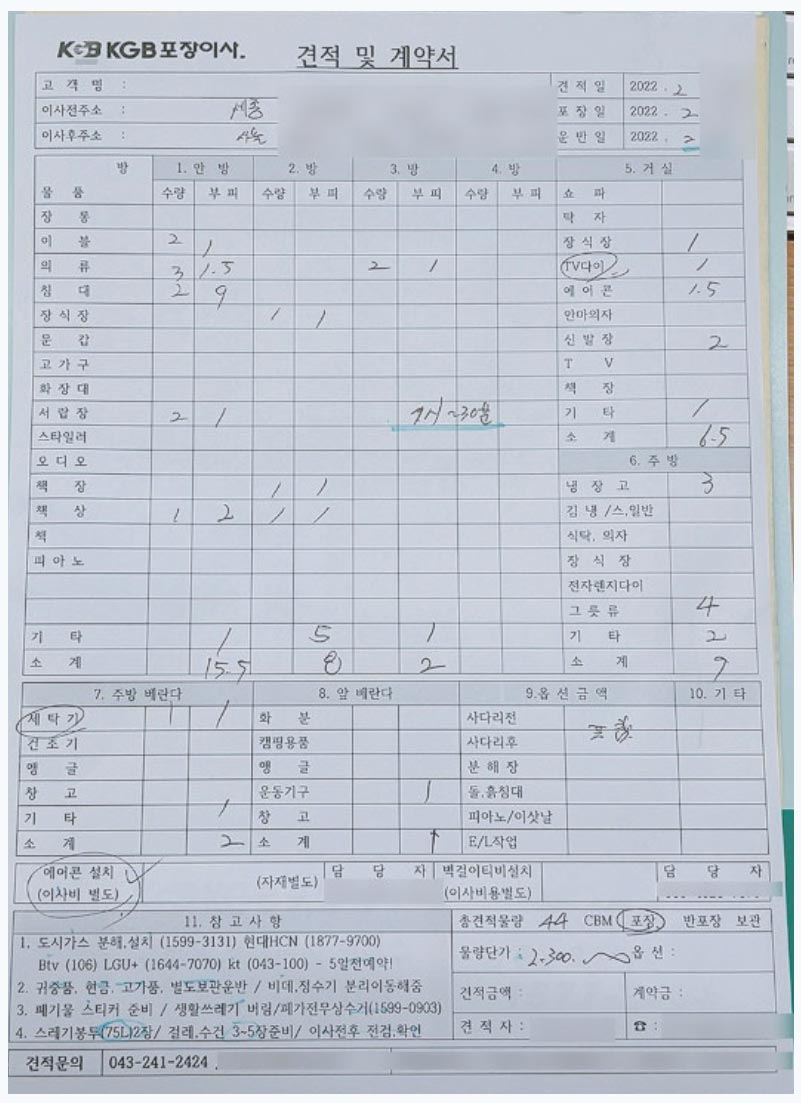 KGB KGB포장이사. 견적 및 계약서
고 객 명 : 견 적 일 2022 . 2
이사전주소 : 세종 포 장 일 2022 . 2
이사후주소 : 서울 운 반 일 2022 . 2
방 1. 안 방 2. 방 3. 방 4. 방 5. 거 실
물 품 수량 부 피 수량 부 피 수량 부 피 수량 부 피 쇼 파
장 롱 탁 자
이 불 2 1 장 식 장 1
의 류 3 1.5 2 1 TV다이 1
침 대 2 9 에 어 콘 1.5
장 식 장 1 1 안마의자
문 갑 신 발 장 2
고 가 구 T V
화 장 대 책 장
서 랍 장 2 1 기 타 1
스타일러 소 계 6.5
오 디 오 6. 주 방
책 장 1 1 냉 장 고 3
책 상 1 2 1 1 김 냉 /스,일반
책 식탁, 의자
피 아 노 장 식 장
전자렌지다이
그 릇 류 4
기 타 1 5 1 기 타 2
소 계 15.5 8 2 소 계 9
7. 주방 베란다 8. 앞 베란다 9.옵 션 금 액 10. 기 타
세 탁 기 1 1 화 분 사다리전 포함
건 조 기 캠핑용품 사다리후
앵 글 앵 글 분 해 장
창 고 운동기구 1 돌,흙침대
기 타 1 창 고 피아노/이삿날
소 계 2 소 계 1 E/L작업
에어콘 설치 (이사비 별도) (자재별도) 담 당 자 벽걸이티비설치 (이사비용별도) 담 당 자
11. 참 고 사 항 총견적물량 44 CBM 포장 반포장 보관
1. 도시가스 분해,설치 (1599-3131) 현대HCN (1877-9700)
Btv (106) LGU+ (1644-7070) kt (043-100) - 5일전예약! 물량단가 : 2.300. 옵 션 :
2. 귀중품, 현금, 고가품, 별도보관운반 / 비데,정수기 분리이동해줌
3. 폐기물 스티커 준비 / 생활쓰레기 버림/폐가전무상수거(1599-0903) 견적금액 : 계약금 :
4. 스레기봉투(75L)2장/ 걸레,수건 3~5장준비/ 이사전후 전검,확인 견 적 자 : ☎ :
견적문의 043-241-2424